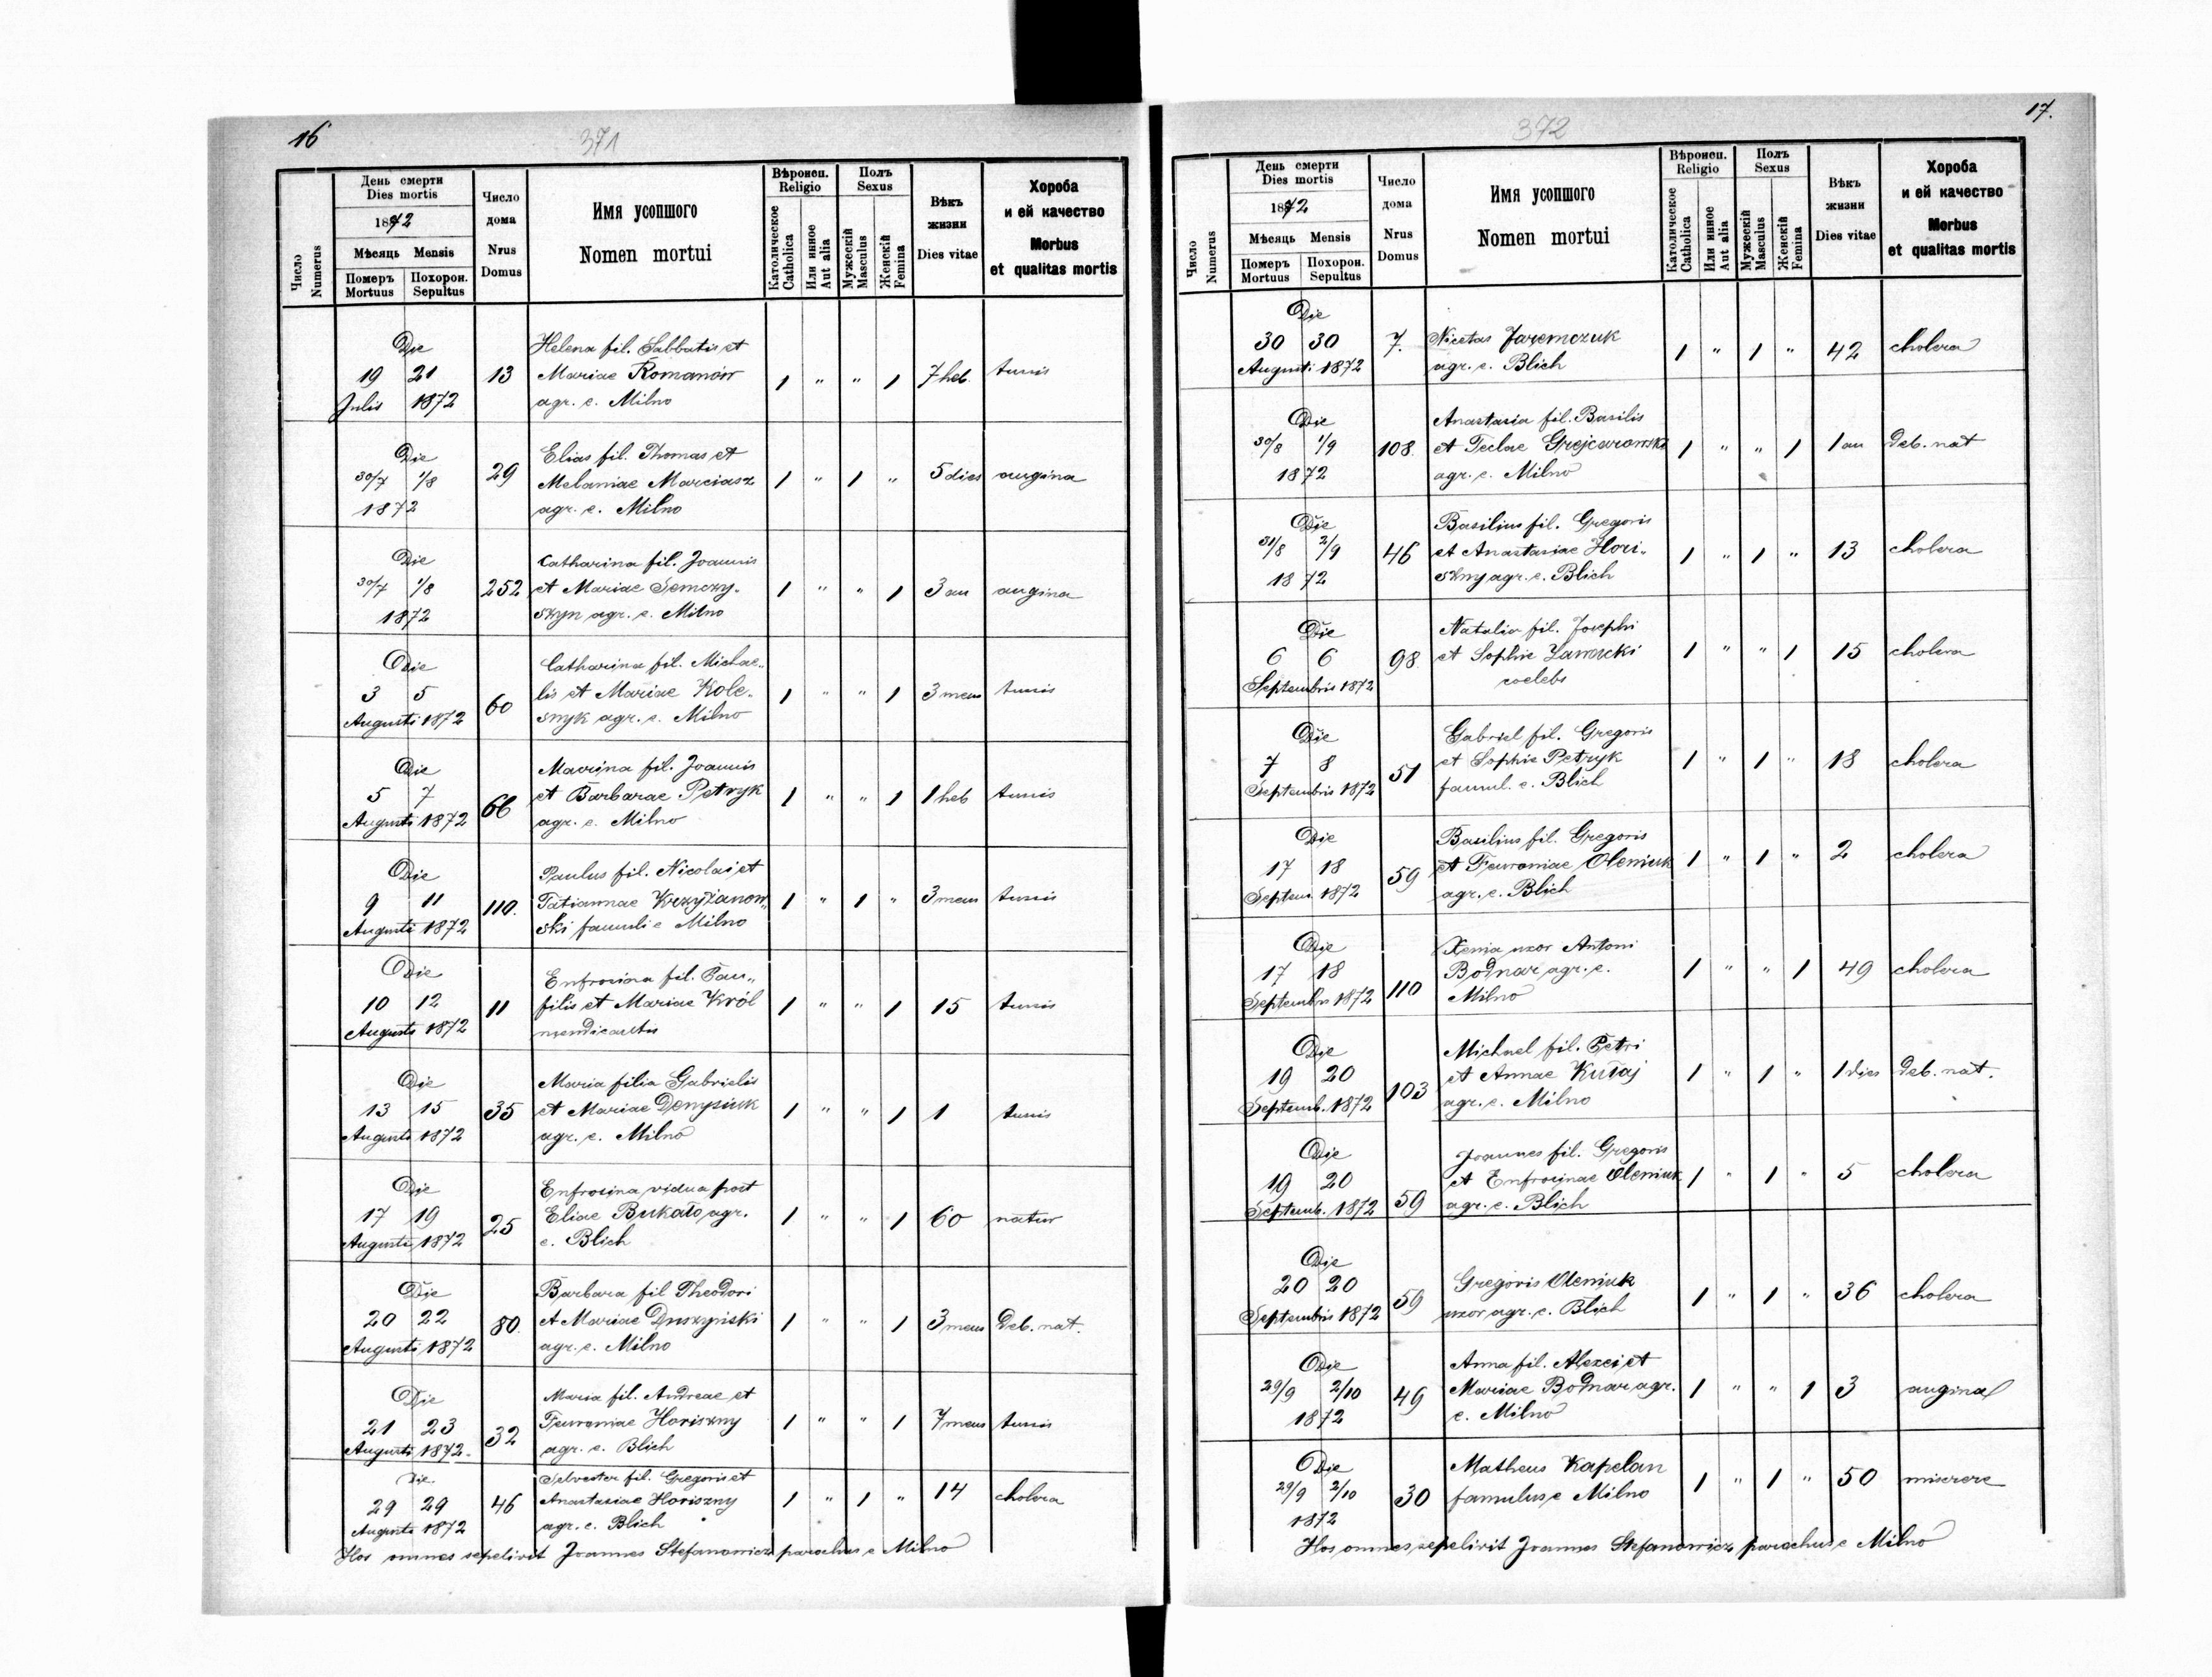 16
371
Число Numerus
День смерти
Dies mortis
1872
Мѣсяць Mensis
Померъ Mortuus
Похорон. Sepultus
Число дома
Nrus Domus
Имя усопшого
Nomen mortui
Вѣроисп. Religio
Католическое Catholica
Или инное Aut alia
Полъ Sexus
Мужескій Masculus
Женскій Femina
Вѣкъ жизни
Dies vitae
Хороба
и ей качество
Morbus
et qualitas mortis
Die
Helena fil. Sabbatis et
19 21 13 Mariae Romanów 1 " " 1 7 heb. tussis
Julii 1872 agr. e. Milno
Die
Elias fil. Thomas et
30/7 1/8 29 Melaniae Marciasz 1 " 1 " 5 dies angina
1872 agr. e. Milno
Die
Catharina fil. Joannis
30/7 1/8 252 et Mariae Semczy-
1 " " 1 3 an angina
1872 szyn agr. e. Milno
Die
Catharina fil. Michae-
3 5 60 lis et Mariae Kole-
1 " " 1 3 mens tussis
Augusti 1872 snyk agr. e. Milno
Die
Marina fil. Joannis
5 7 66 et Barbarae Petryk 1 " " 1 1 heb tussis
Augusti 1872 agr. e. Milno
Die
Paulus fil. Nicolai et
9 11 110. Tatiannae Krzyżanow- 1 " 1 " 3 mens tussis
Augusti 1872 ski famuli e Milno
Die
Eufrosina fil. Pan-
10 12 11 filis et Mariae Król 1 " " 1 15 tussis
Augusti 1872 mendicantis
Die
Maria filia Gabrielis
13 15 35 et Mariae Denysiuk 1 " " 1 1 tussis
Augusti 1872 agr. e. Milno
Die
Eufrosina vidua post
17 19 25 Eliae Bukało agr. 1 " " 1 60 natur
Augusti 1872 e. Blich
Die
Barbara fil Theodori
20 22 80. et Mariae Duszyński 1 " " 1 3 mens Deb. nat.
Augusti 1872 agr. e. Milno
Die
Maria fil. Andreae et
21 23 32 Fewroniae Horiszny 1 " " 1 7 mens tussis
Augusti 1872. agr. e. Blich
Die
Selvester fil. Gregoris et
29 29 46 Anastasiae Horiszny 1 " 1 " 14 cholera
Augusti 1872 agr. e. Blich
Hos omnes sepelivit Joannes Stefanowicz parochus e Milno
17.
372
Число Numerus
День смерти
Dies mortis
1872
Мѣсяць Mensis
Померъ Mortuus
Похорон. Sepultus
Число дома
Nrus Domus
Имя усопшого
Nomen mortui
Вѣроисп. Religio
Католическое Catholica
Или инное Aut alia
Полъ Sexus
Мужескій Masculus
Женскій Femina
Вѣкъ жизни
Dies vitae
Хороба
и ей качество
Morbus
et qualitas mortis
Die
30 30 7. Nicetas Jaremczuk 1 " 1 " 42 cholera
Augusti 1872 agr. e. Blich
Die
Anastasia fil. Basilis
30/8 1/9 108. et Teclae Grejcarowski 1 " " 1 1 an Deb. nat
1872 agr. e. Milno
Die
Basilius fil. Gregoris
31/8 2/9 46 et Anastasiae Hori- 1 " 1 " 13 cholera
1872 szny agr. e. Blich
Die
Natalia fil. Josephi
6 6 98 et Sophie Zawucki 1 " " 1 15 cholera
Septembris 1872 coelebs
Die
Gabriel fil. Gregoris
7 8 51 et Sophie Petryk 1 " 1 " 18 cholera
Septembris 1872 famul. e. Blich
Die
Basilius fil. Gregoris
17 18 59 et Fewroniae Oleniuk 1 " 1 " 2 cholera
Septem. 1872 agr. e. Blich
Die
Xenia uxor Antoni
17 18 110 Bodnar agr. e. 1 " " 1 49 cholera
Septembris 1872 Milno
Die
Michael fil. Petri
19 20 103 et Annae Kułaj 1 " 1 " 1 dies Deb. nat.
Septemb. 1872 agr. e. Milno
Die
Joannes fil. Gregoris
19 20 59 et Eufrosinae Oleniuk 1 " 1 " 5 cholera
Septemb. 1872 agr. e. Blich
Die
20 20 59 Gregoris Oleniuk 1 " 1 " 36 cholera
Septembris 1872 uxor agr. e. Blich
Die
Anna fil. Alexei et
29/9 2/10 49 Mariae Bodnar agr. 1 " " 1 3 angina
1872 e. Milno
Die
Matheus Kapelan
29/9 2/10 30 famulus e Milno 1 " 1 " 50 miserere
1872
Hos omnes sepelivit Joannes Stefanowicz parochus e Milno